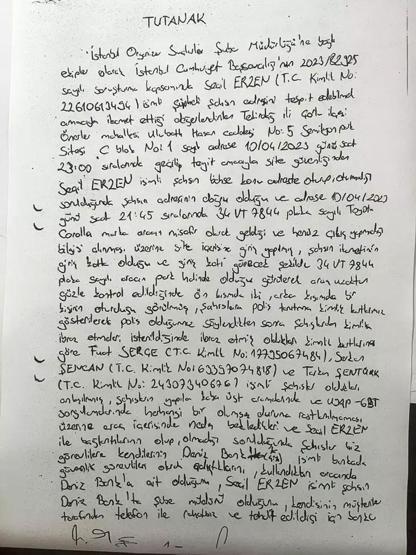 TUTANAK
İstanbul Organize Suçlarla Şube Müdürlüğü'ne bağlı
ekipler olarak İstanbul Cumhuriyet Başsavcılığı'nın 2023/
sayılı soruşturma kapsamında Seçil ERZEN (T.C. Kimlik No:
isimli şüpheli şahsın adresini tespit edebilmek
amacıyla ikamet ettiği değerlendirilen Tekirdağ ili Çorlu ilçesi
Önerler mahallesi Ulubatlı Hasan caddesi No: 5
Sitesi C blok No: 1 sayılı adrese 10/04/2023 günü saat
23:00 sıralarında geçilip teyit amacıyla site güvenliğinden
Seçil ERZEN isimli şahsın bahse konu adreste oturup oturmadığı
sorulduğunda şahsın adresinin doğru olduğu ve adrese 10/04/2023
günü saat 21:45 sıralarında 34 VT 7844 plaka sayılı Toyota
Corolla marka aracın misafir olarak geldiği ve henüz çıkış yapmadığı
bilgisi alınması üzerine site içerisine giriş yapılmış, şahsın ikametinin
giriş katta olduğu ve giriş katı görecek şekilde 34 VT 7844
plaka sayılı aracın park halinde olduğu görülerek araç uzaktan
gözle kontrol edildiğinde ön kısımda iki, arka kısımda bir
kişinin oturduğu görülmüş, şahıslara polis tanıtma kimlik kartlarımız
gösterilerek polis olduğumuz söylendikten sonra şahıslardan kimlik
ibraz etmeleri istenildiğinde ibraz etmiş oldukları kimlik kartlarına
göre Fuat (T.C. Kimlik No: ), Serkan
(T.C. Kimlik No: ) ve ŞENTÜRK
(T.C. Kimlik No: ) isimli şahıslar oldukları
anlaşılmış, şahısların yapılan kaba üst aramalarında ve UYAP-GBT
sorgulamalarında herhangi bir olumsuz duruma rastlanılmaması
üzerine araç içerisinde neden bekledikleri ve Seçil ERZEN
ile bağlantılarının olup olmadığı sorulduğunda şahıslar biz
görevlilere kendilerinin Deniz Bank isimli bankada
güvenlik görevlileri olarak çalıştıklarını, kullandıkları aracında
Deniz Bank'a ait olduğunu, Seçil ERZEN isimli şahsın
Deniz Bank'ta şube müdürü olduğunu, kendisinin müşteriler
tarafından telefon ile rahatsız ve tehdit edildiği için banka